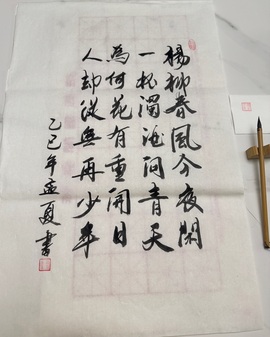 楊柳春風今夜閑
一杯濁酒問青天
為何花有重開日
人却從無再少年
乙巳年孟夏書